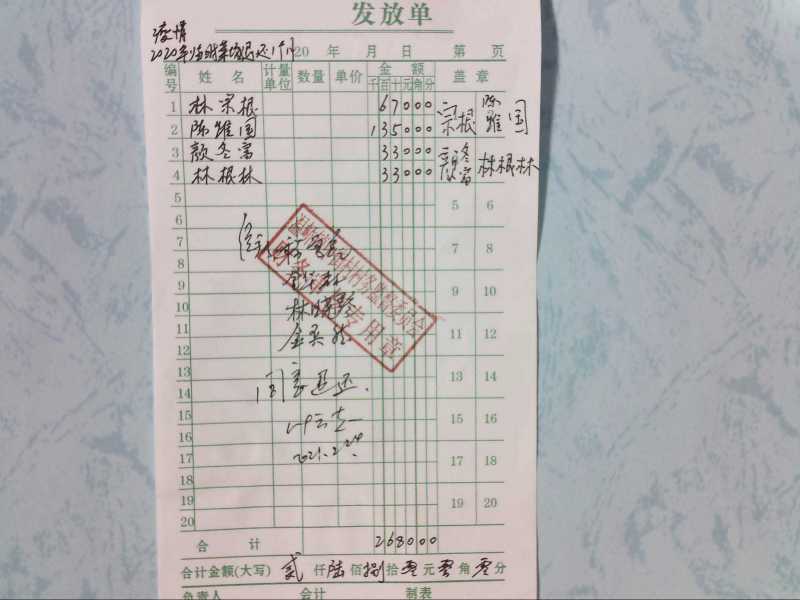 发放单
疫情
2020年临时菜场退还1个月 20 年 月 日 第 页
编号 姓名 计量单位 数量 单价 金额 千百十元角分 盖章
1 林宗根 67000 宗根 陈雖国
2 陈雖国 135000
3 颜冬富 33000 颜冬富 林根林
4 林根林 33000
5 5 6
6
7 7 8
8
9 9 10
10
11 11 12
12
13 13 14
14 同意退还.
15 15 16
16
17 2021.2.24. 17 18
18
19 19 20
20
合计 268000
合计金额(大写) 贰仟陆佰捌拾零元零角零分
负责人 会计 制表